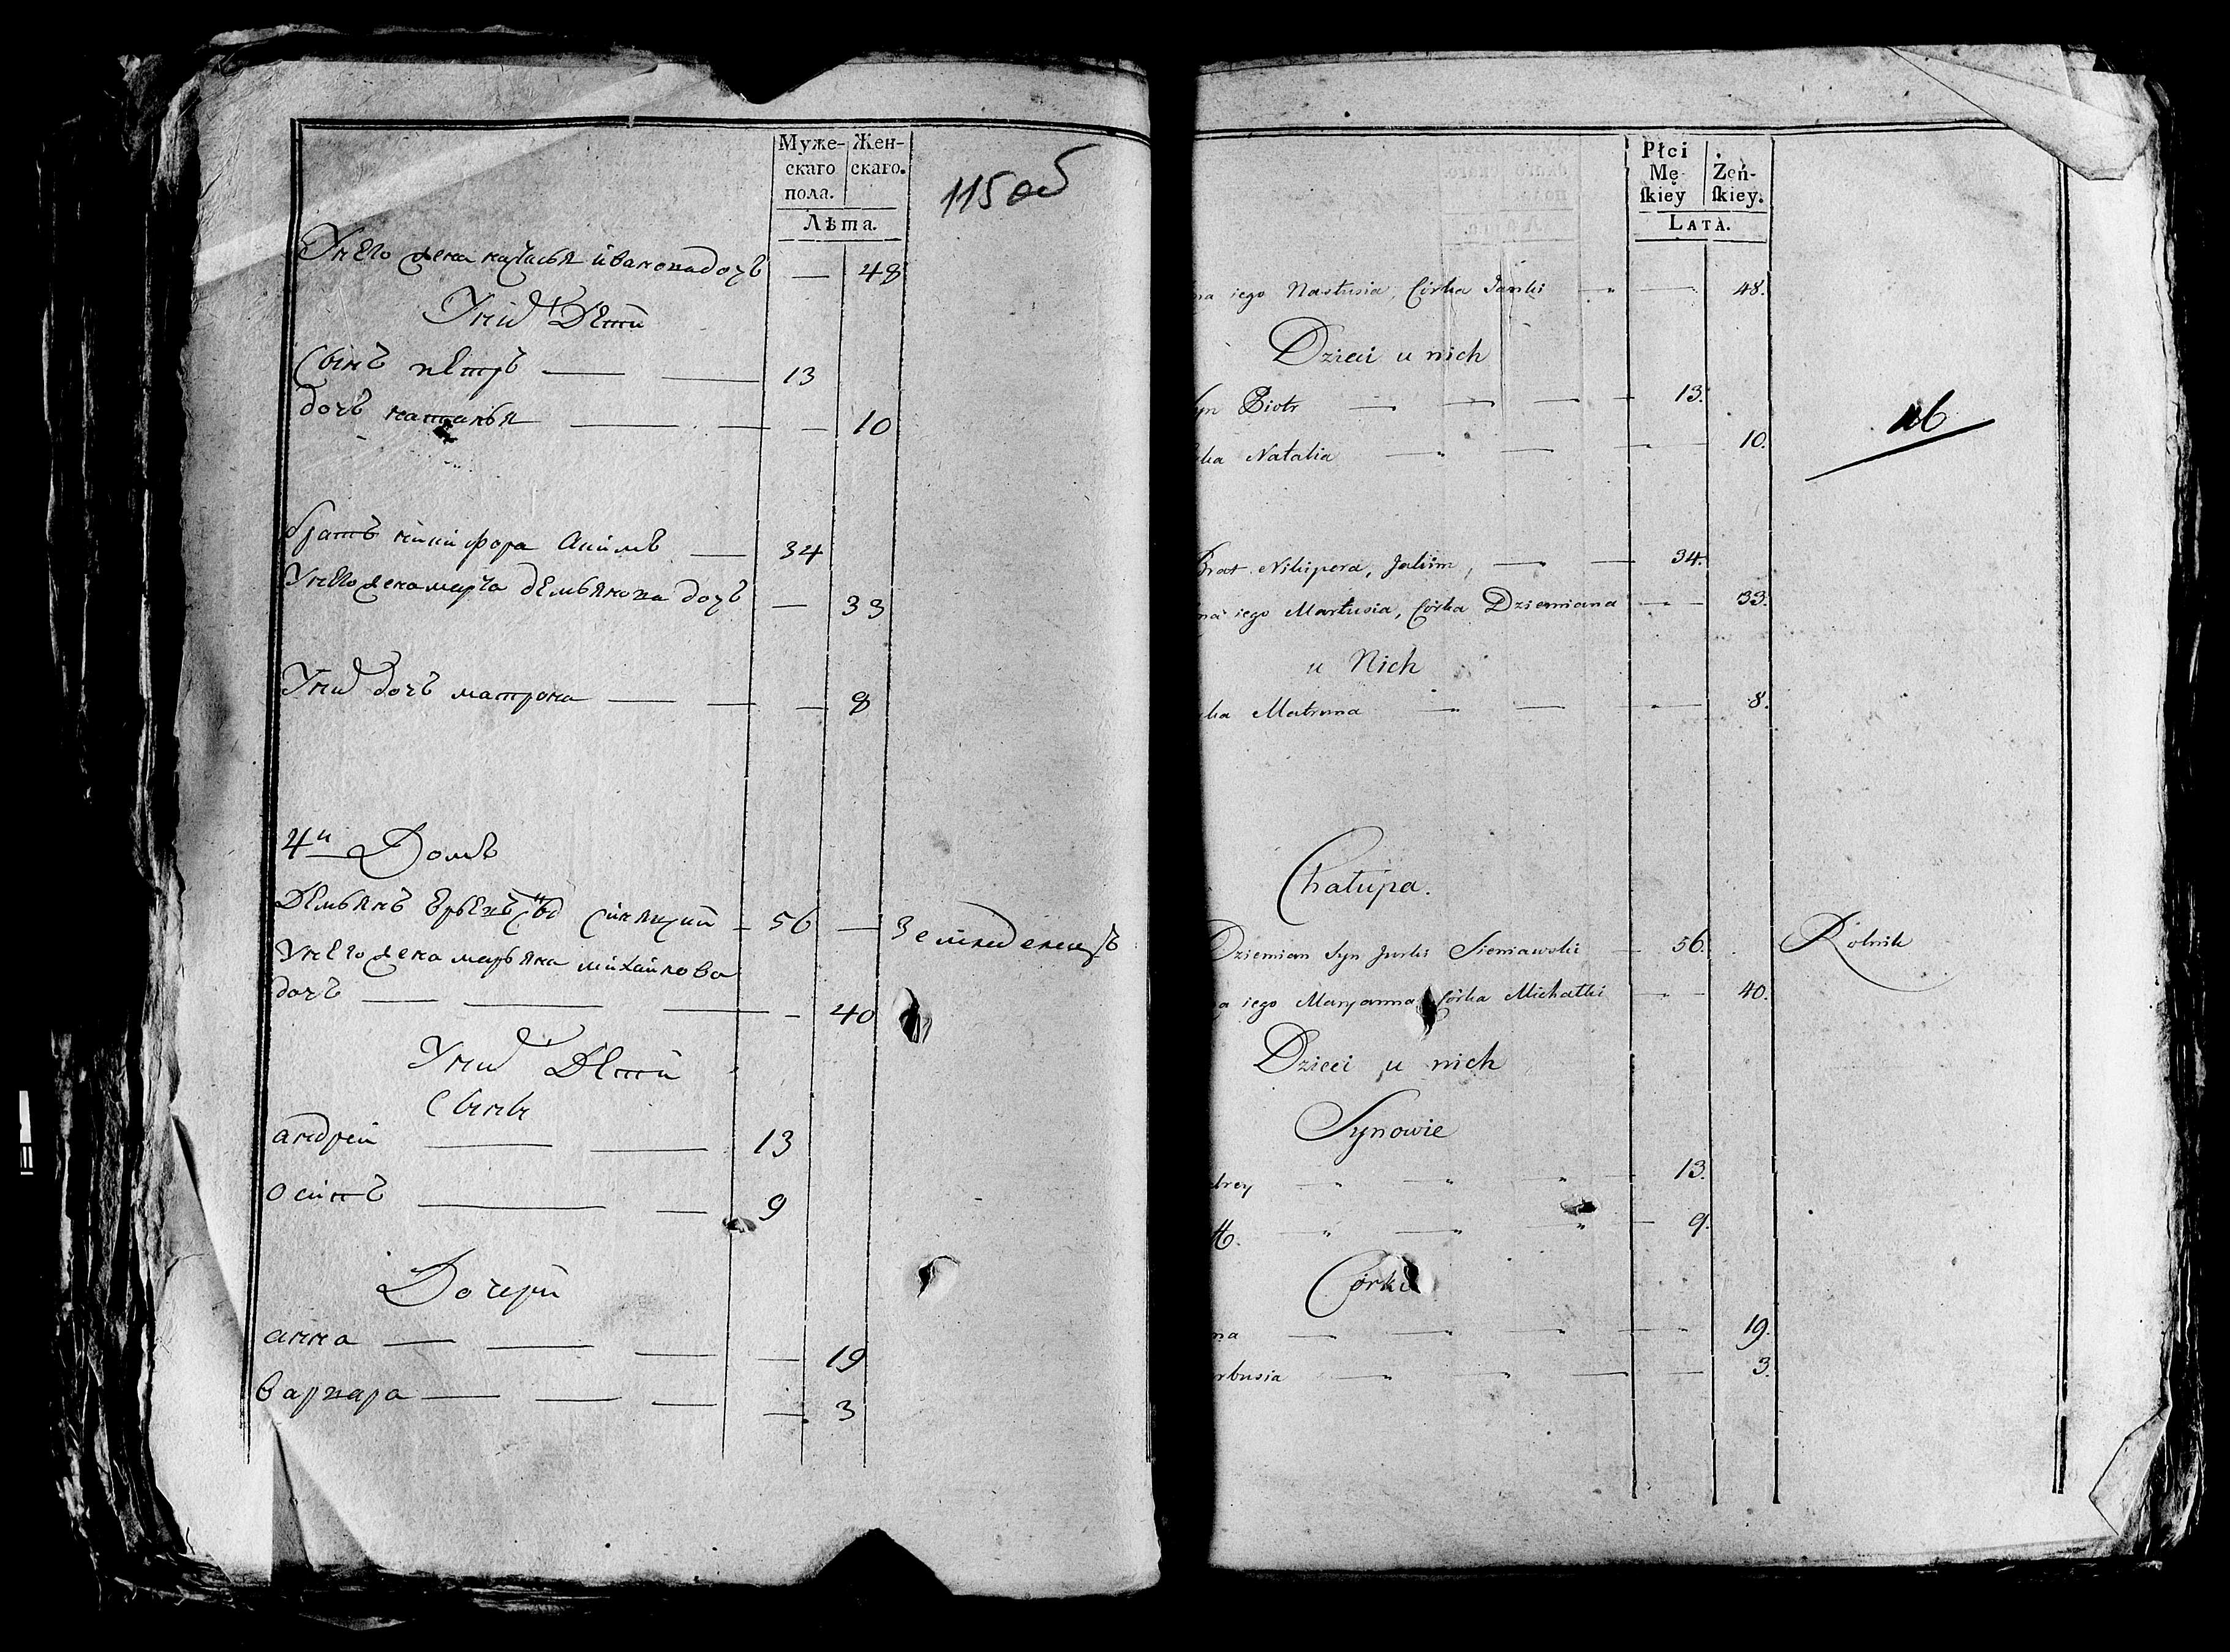 Муже-
скаго
пола.
Жен-
скаго.
Лѣта.
115 об
Унего жена настасья ивановадочь — 48
Уних Дети
Сынъ пЕтръ — — 13
дочь наталья — — — 10
братъ никифора Акимъ — 34
Унего жена марѳа дЕмьянова дочь — 33
Уних дочь матрона — — — 8
4й Домъ
ДЕмьянъ Юрьевъ Синявский — 56 — Земледелецъ
УнЕго жена марьяна михайлова
дочь — — — — 40
Уних Дети
Сыны
андрей — — 13
осипъ — — 9
Дочери
анна — — — — 19
варвара — — — — 3
Płci
Mę-
ſkiey
Żeń-
ſkiey.
LATA.
na iego Nastusia, Córka Janki — — 48.
Dzieci u nich
yn Piotr — — — 13.
rka Natalia — — — 10.
116
Brat Nikipera, Jakim, — — 34.
na iego Martusia, Córka Dziemiana — — 33.
u Nich
rka Matrona — — — 8.
Chałupa.
Dziemian Syn Jurki Sieniawski — 56. Rolnik
a iego Maryanna Córka Michałki — — 40.
Dzieci u nich
Synowie
drey — — — 13.
— — — 9.
Córki
na — — — — 19.
rbusia — — — — 3.